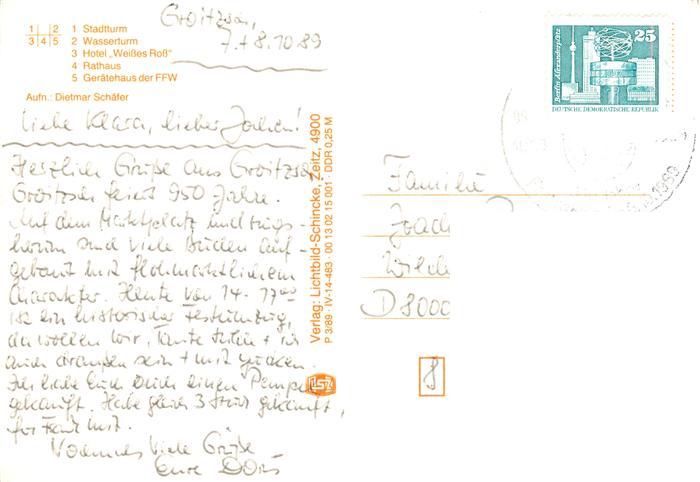 Groitzsch,
7.+8.10.89
1 2 1 Stadtturm
3 4 5 2 Wasserturm
3 Hotel „Weißes Roß"
4 Rathaus
5 Gerätehaus der FFW
Aufn.: Dietmar Schäfer
Liebe Klara, lieber Jochen!
Herzlich Grüße aus Groitzsch.
Groitzsch feiert 950 Jahre.
Auf dem Marktplatz und rings-
herum sind viele Buden auf-
gebaut mit flohmarktlichem
Charakter. Heute von 14-17⁰⁰
ist ein historischer Festumzug,
da wollen wir, Tante + ich
auch draußen sein + mit gucken.
Ich habe Euch auch einen
gekauft. Habe gleich 3 Stück gekauft,
für Frank mit.
Viele Grüße
Eure Doris
Verlag: Lichtbild-Schincke, Zeitz, 4900
P 3/89 · IV-14-483 · 00 13 02 15 001 · DDR 0,25 M
Berlin, Alexanderplatz
25
DEUTSCHE DEMOKRATISCHE REPUBLIK
Familie
Joach
D 8000
8